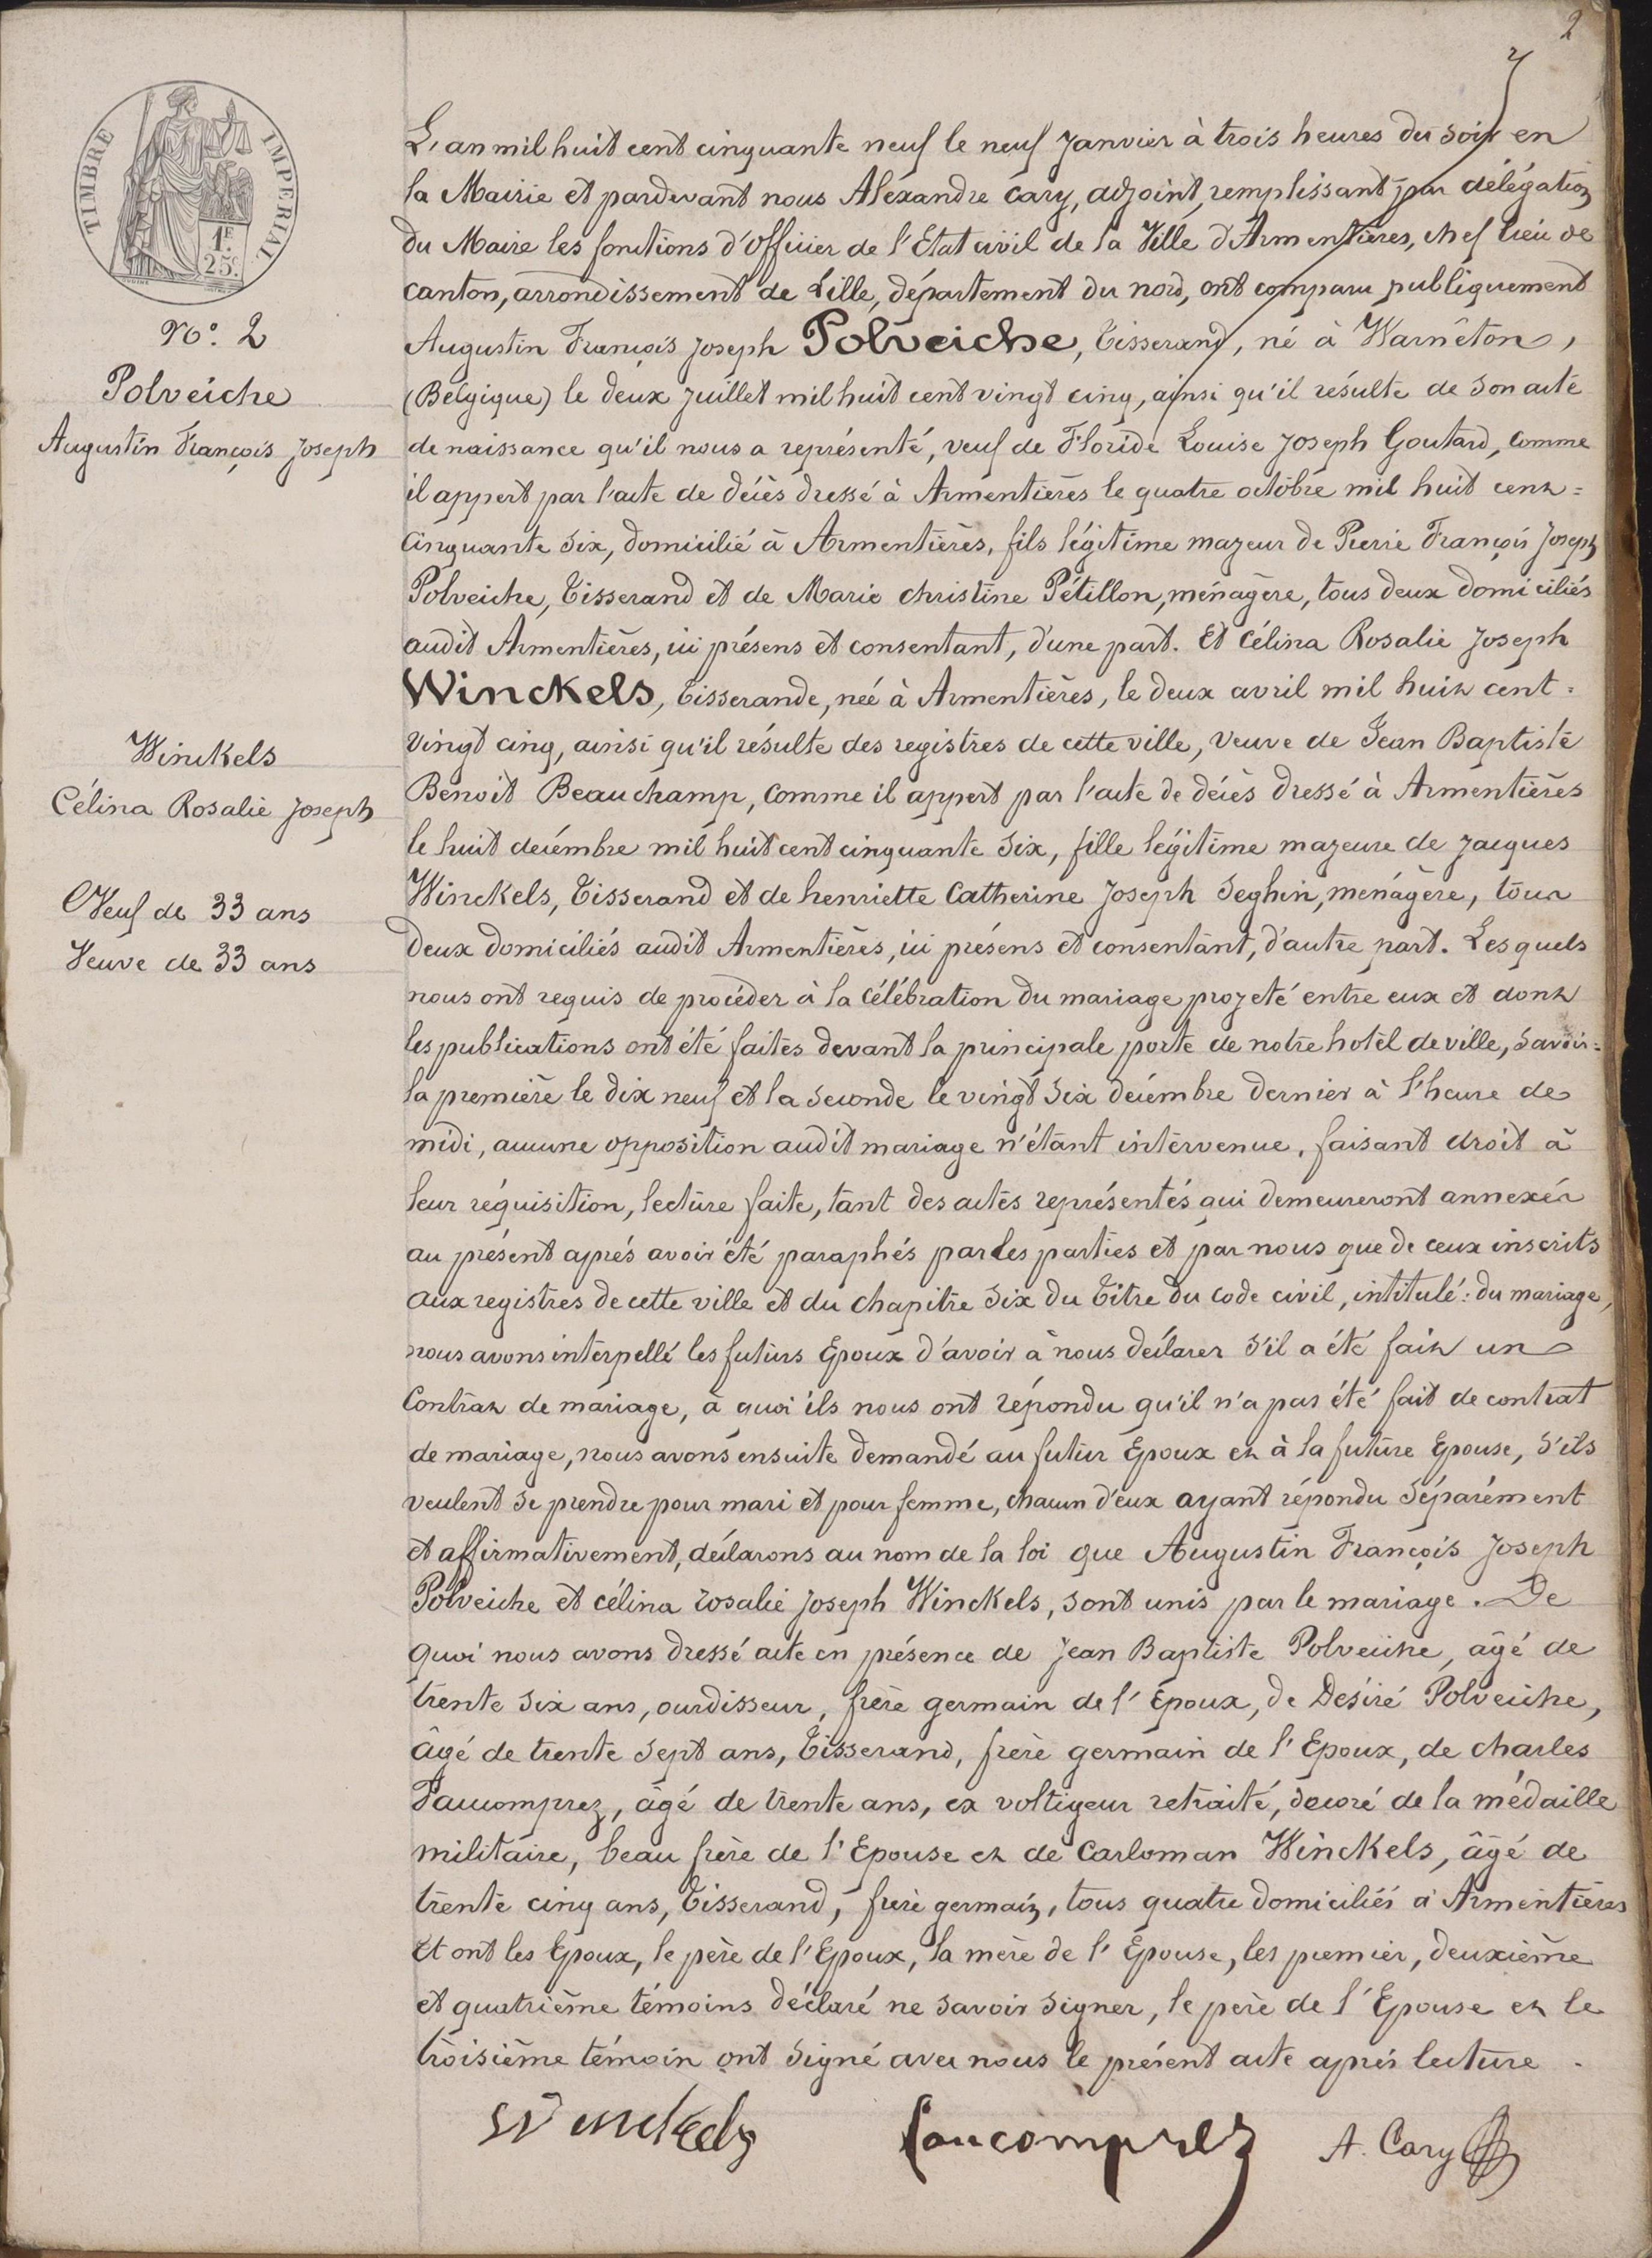 2
TIMBRE IMPERIAL
1F.
25c
L'an mil huit cent cinquante neuf le neuf Janvier à trois heures du soir en
la Mairie et pardevant nous Alexandre Cary, adjoint, remplissant par délégation
du Maire les fonctions d'officier de l'Etat civil de la Ville d'Armentières, chef lieu de
canton, arrondissement de Lille, département du nord, ont comparu publiquement
Augustin François Joseph Polveiche, Tisserand, né à Warnêton,
(Belgique) le deux Juillet mil huit cent vingt cinq, ainsi qu'il résulte de son acte
de naissance qu'il nous a représenté, veuf de Floride Louise Joseph Goutard, comme
il appert par l'acte de décès dressé à Armentières le quatre octobre mil huit cent =
cinquante six, domicilié à Armentières, fils légitime majeur de Pierre François Joseph
Polveiche, Tisserand et de Marie christine Pétillon, ménagère, tous deux domiciliés
audit Armentières, ici présens et consentant, d'une part. Et Célina Rosalie Joseph
Winckels, Tisserande, née à Armentières, le deux avril mil huit cent =
vingt cinq, ainsi qu'il résulte des registres de cette ville, Veuve de Jean Baptiste
Benoit Beauchamp, comme il appert par l'acte de décès dressé à Armentières
le huit décembre mil huit cent cinquante six, fille légitime majeure de Jacques
Winckels, Tisserand et de henriette Catherine Joseph Seghin, menagère, tous
deux domiciliés audit Armentières, ici présens et consentant, d'autre part. Les quels
nous ont requis de procéder à la célébration du mariage projeté entre eux et dont
les publications ont été faites devant la principale porte de notre hotel de ville, savoir =
la première le dix neuf et la seconde le vingt six décembre dernier à l'heure de
midi, aucune opposition audit mariage n'étant intervenue, faisant droit à
leur réquisition, lecture faite, tant des actes représentés qui demeureront annexés
au présent aprés avoir été paraphés par les parties et par nous que de ceux inscrits
aux registres de cette ville et du chapitre six du Titre du code civil, intitulé : du mariage,
nous avons interpellé les futurs Epoux d'avoir à nous déclarer s'il a été fait un
Contrat de mariage, à quoi ils nous ont répondu qu'il n'a pas été fait de contrat
de mariage, nous avons ensuite demandé au futur Epoux et à la future Epouse, s'ils
veulent se prendre pour mari et pour femme, chacun d'eux ayant répondu séparément
et affirmativement, déclarons au nom de la loi que Augustin François Joseph
Polveiche et célina rosalie Joseph Winckels, sont unis par le mariage. De
quoi nous avons dressé acte en présence de Jean Baptiste Polveiche, âgé de
trente six ans, ourdisseur, frère germain de l'Epoux, de Desiré Polveiche,
âgé de trente sept ans, Tisserand, frère germain de l'Epoux, de charles
Faucomprez, âgé de trente ans, ex voltigeur retraité, décoré de la médaille
militaire, beau frère de l'Epouse et de Carloman Winckels, âgé de
trente cinq ans, Tisserand, frère germain, tous quatre domiciliés à Armentières
Et ont les Epoux, le père de l'Epoux, la mère de l'Epouse, les premier, deuxième
et quatrième témoins déclaré ne savoir signer, le père de l'Epouse et le
troisième témoin ont signé avec nous le présent acte après lecture.
Winckels
faucomprez
A. Cary
No. 2
Polveiche
Augustin François Joseph
Winckels
Célina Rosalie Joseph
Veuf de 33 ans
Veuve de 33 ans